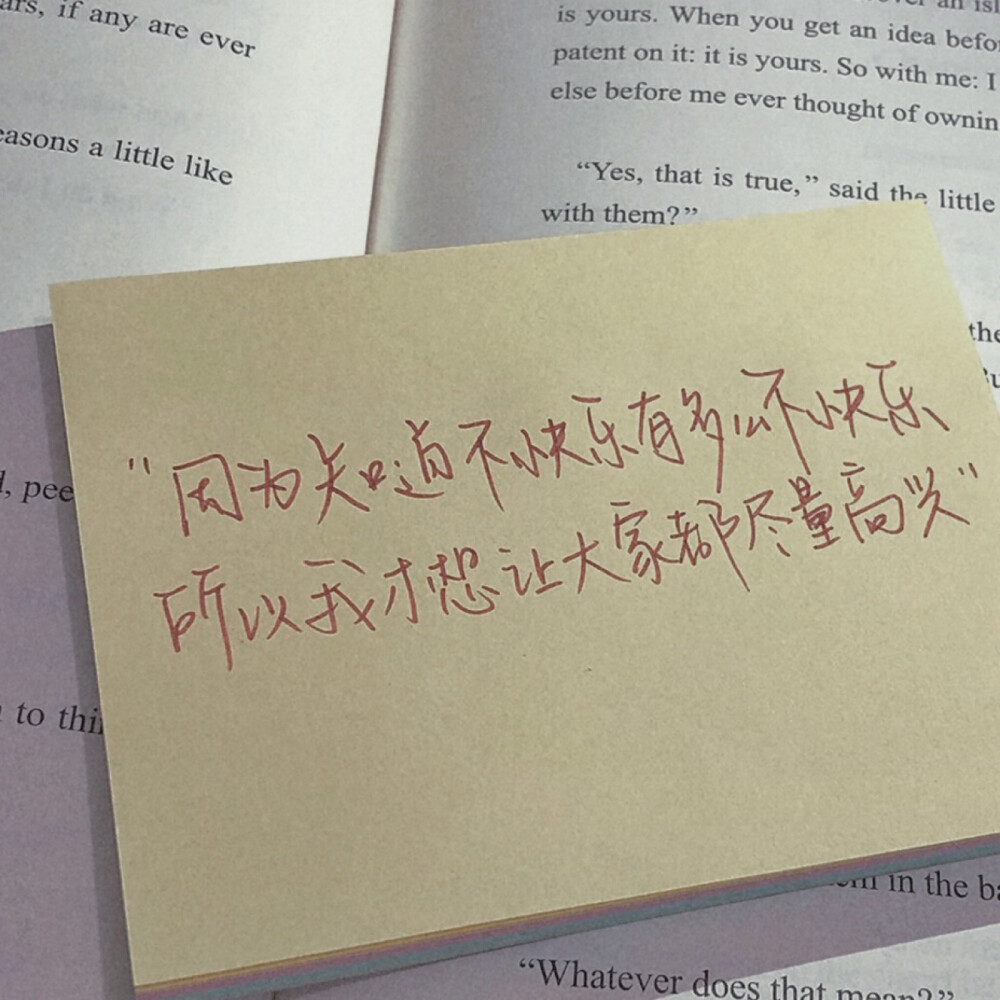 ars, if any are ever
easons a little like
is yours. When you get an idea befo
patent on it: it is yours. So with me: I
else before me ever thought of ownin
“Yes, that is true,” said the little
with them?”
the
"因为知道不快乐有多么不快乐
所以我才想让大家都尽量高兴"
d, pee
to thi
in the ba
“Whatever does that mean?”